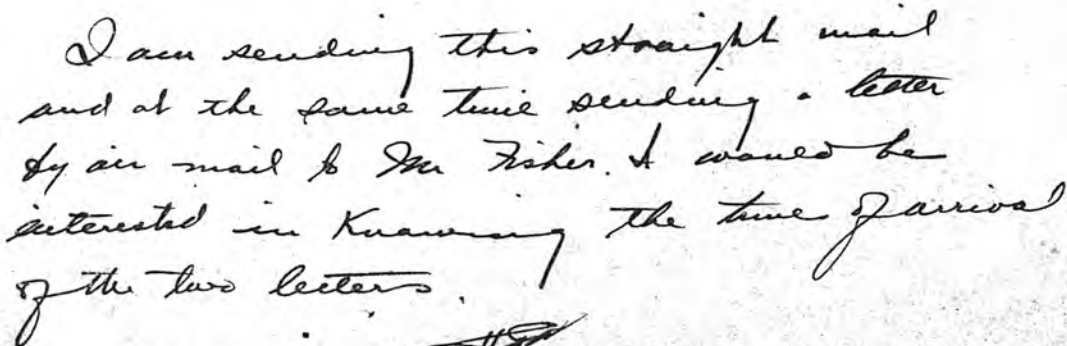 I am sending this straight mail
and at the same time sending a letter
by air mail to Mr Fisher. I would be
interested in knowing the time of arrival
of the two letters.